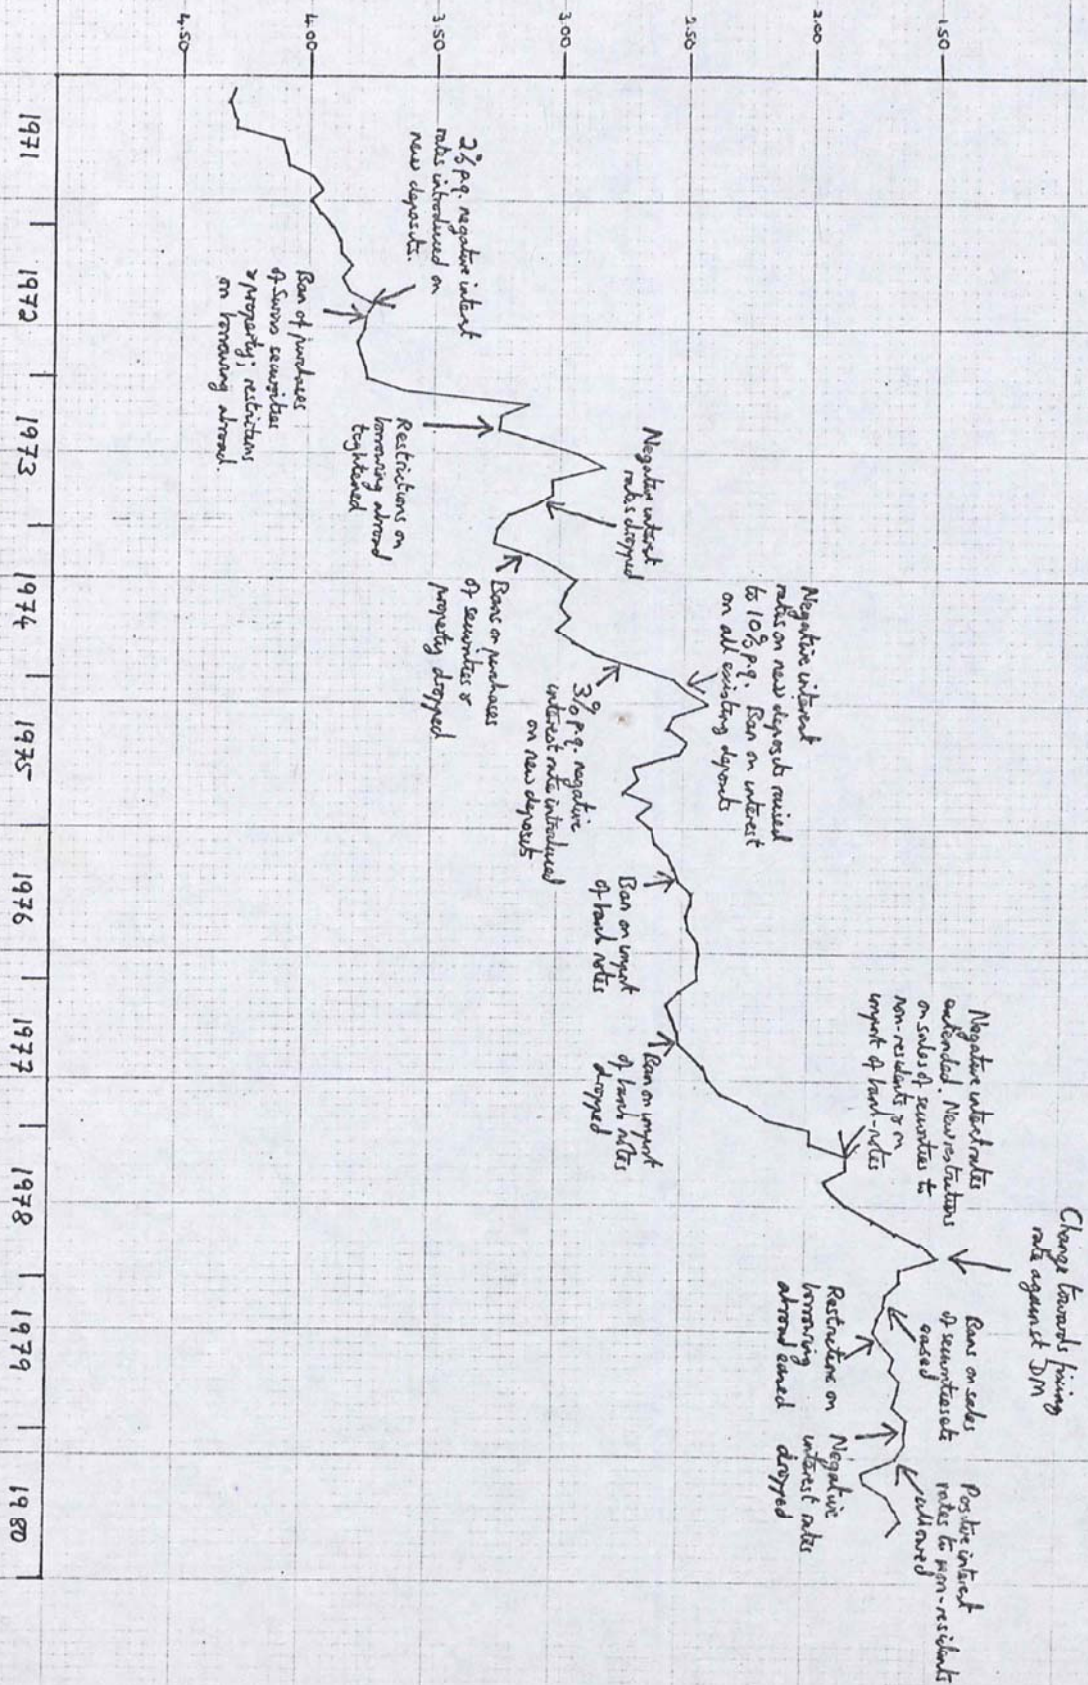 Change towards fixing
rate against DM
1.50
2.00
2.50
3.00
3.50
4.00
4.50
2% p.q. negative interest
rates introduced on
new deposits.
Ban of purchases
of Swiss securities
& property; restrictions
on borrowing abroad.
Restrictions on
borrowing abroad
tightened
Negative interest
rates dropped
Bans on purchases
of securities &
property dropped
3% p.q. negative
interest rate introduced
on new deposits
Negative interest
rates on new deposits raised
to 10% p.q. Ban on interest
on all existing deposits
Ban on import
of bank notes
Ban on import
of bank notes
dropped
Negative interest rates
extended. New restrictions
on sales of securities to
non-residents & on
import of bank-notes
Bans on sales
of securities etc
eased
Restrictions on
borrowing
abroad eased
Negative
interest rates
dropped
Positive interest
rates to non-residents
allowed
1971
1972
1973
1974
1975
1976
1977
1978
1979
1980